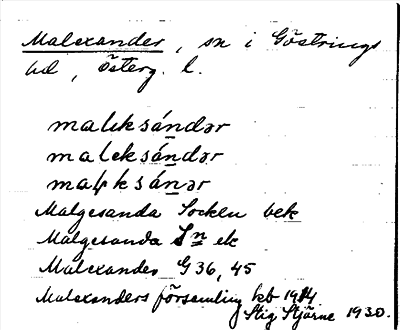 Malexander, sn i Göstrings
hd, Österg. l.
maləksándər
malεksándər
maləksánər
Malgesanda Socken bek
Malgesanda Sn ek
Malexander G36, 45
Malexanders församling kb 1914
Stig Stjärne 1930.